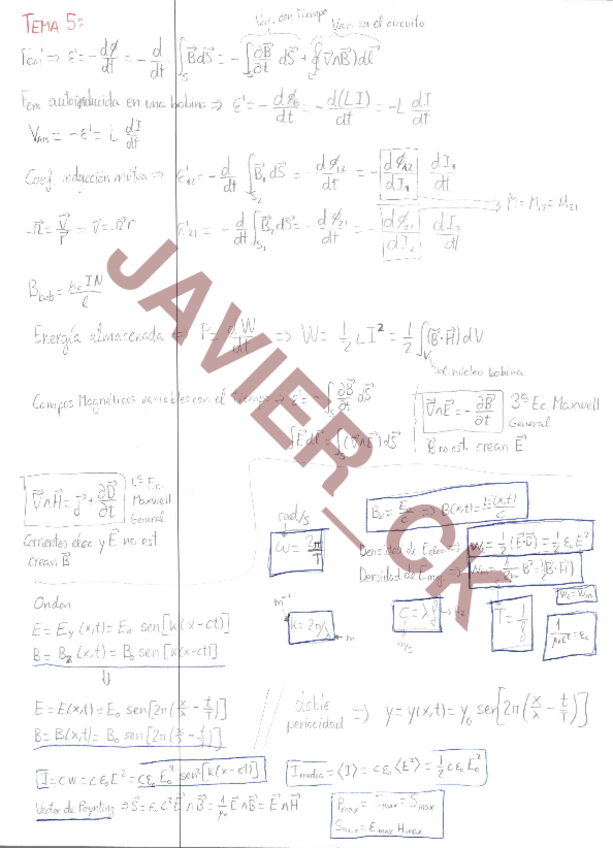 TEMA 5:
Var. con tiempo
Var. en el circuito
Fem ⇒ ε = -dϕ/dt = -d/dt ∫_S B⃗dS⃗ = -∫_S ∂B⃗/∂t dS⃗ + ∮_L (v⃗∧B⃗)dl⃗
Fem autoinducida en una bobina ⇒ ε = -dϕ_B/dt = -d(LI)/dt = -L dI/dt
= -ε = L dI/dt
Coef. inducción mútua ⇒ ε_12 = -d/dt ∫_S2 B⃗_1 dS⃗ = -dϕ_12/dt = -dϕ_12/dI_1 dI_1/dt
→ M = M_12 = M_21
-Ω⃗ = v⃗/r ⇒ v⃗ = Ω⃗r
ε_21 = -d/dt ∫_S1 B⃗_2 dS⃗ = -dϕ_21/dt = -dϕ_21/dI_2 dI_2/dt
B_bob = μ_0 IN/l
Energía almacenada ⇒ P = dW/dt ⇒ W = 1/2 LI² = 1/2 ∫_V (B⃗·H⃗)dV
vol. núcleo bobina
Campos Magnéticos variables con el tiempo ⇒ ε = -∫_S ∂B⃗/∂t dS⃗
∇⃗∧E⃗ = -∂B⃗/∂t
3ª Ec. Maxwell
General
B⃗ no est. crean E⃗
∫E⃗dl⃗ = ∫_S (∇⃗∧E⃗)dS⃗
∇⃗∧H⃗ = J⃗ + ∂D⃗/∂t
Ec.
Maxwell
General
Corrientes elec y E⃗ no est
crean B⃗
rad/s
ω = 2π/T
B_0 = E_0/c ⇒ B(x,t) = E(x,t)/c
Densidad de E_elec ⇒ W_e = 1/2 (E⃗·D⃗) = 1/2 ε_0 E²
Densidad de E_mag ⇒
W_e = W_m
m⁻¹
k = 2π/λ
m
c = λf
Hz
m/s
T = 1/f
1/μ_0c² = ε_0
Ondas
E = E_y (x,t) = E_0 sen[k(x-ct)]
B = B_z (x,t) = B_0 sen[k(x-ct)]
⇓
E = E(x,t) = E_0 sen[2π(x/λ - t/T)]
B = B(x,t) = B_0 sen[2π(x/λ - t/T)]
doble
periocidad ⇒ y = y(x,t) = y_0 sen[2π(x/λ - t/T)]
I = cw = cε_0E² = cε_0 E_0² sen²[k(x-ct)]
I_media = ⟨I⟩ = cε_0 ⟨E²⟩ = 1/2 cε_0 E_0²
Vector de Poynting ⇒ S⃗ = ε_0 c² E⃗∧B⃗ = 1/μ_0 E⃗∧B⃗ = E⃗∧H⃗
P_max = I_max = S_max
S_max = E_max H_max
JAVIER_CK